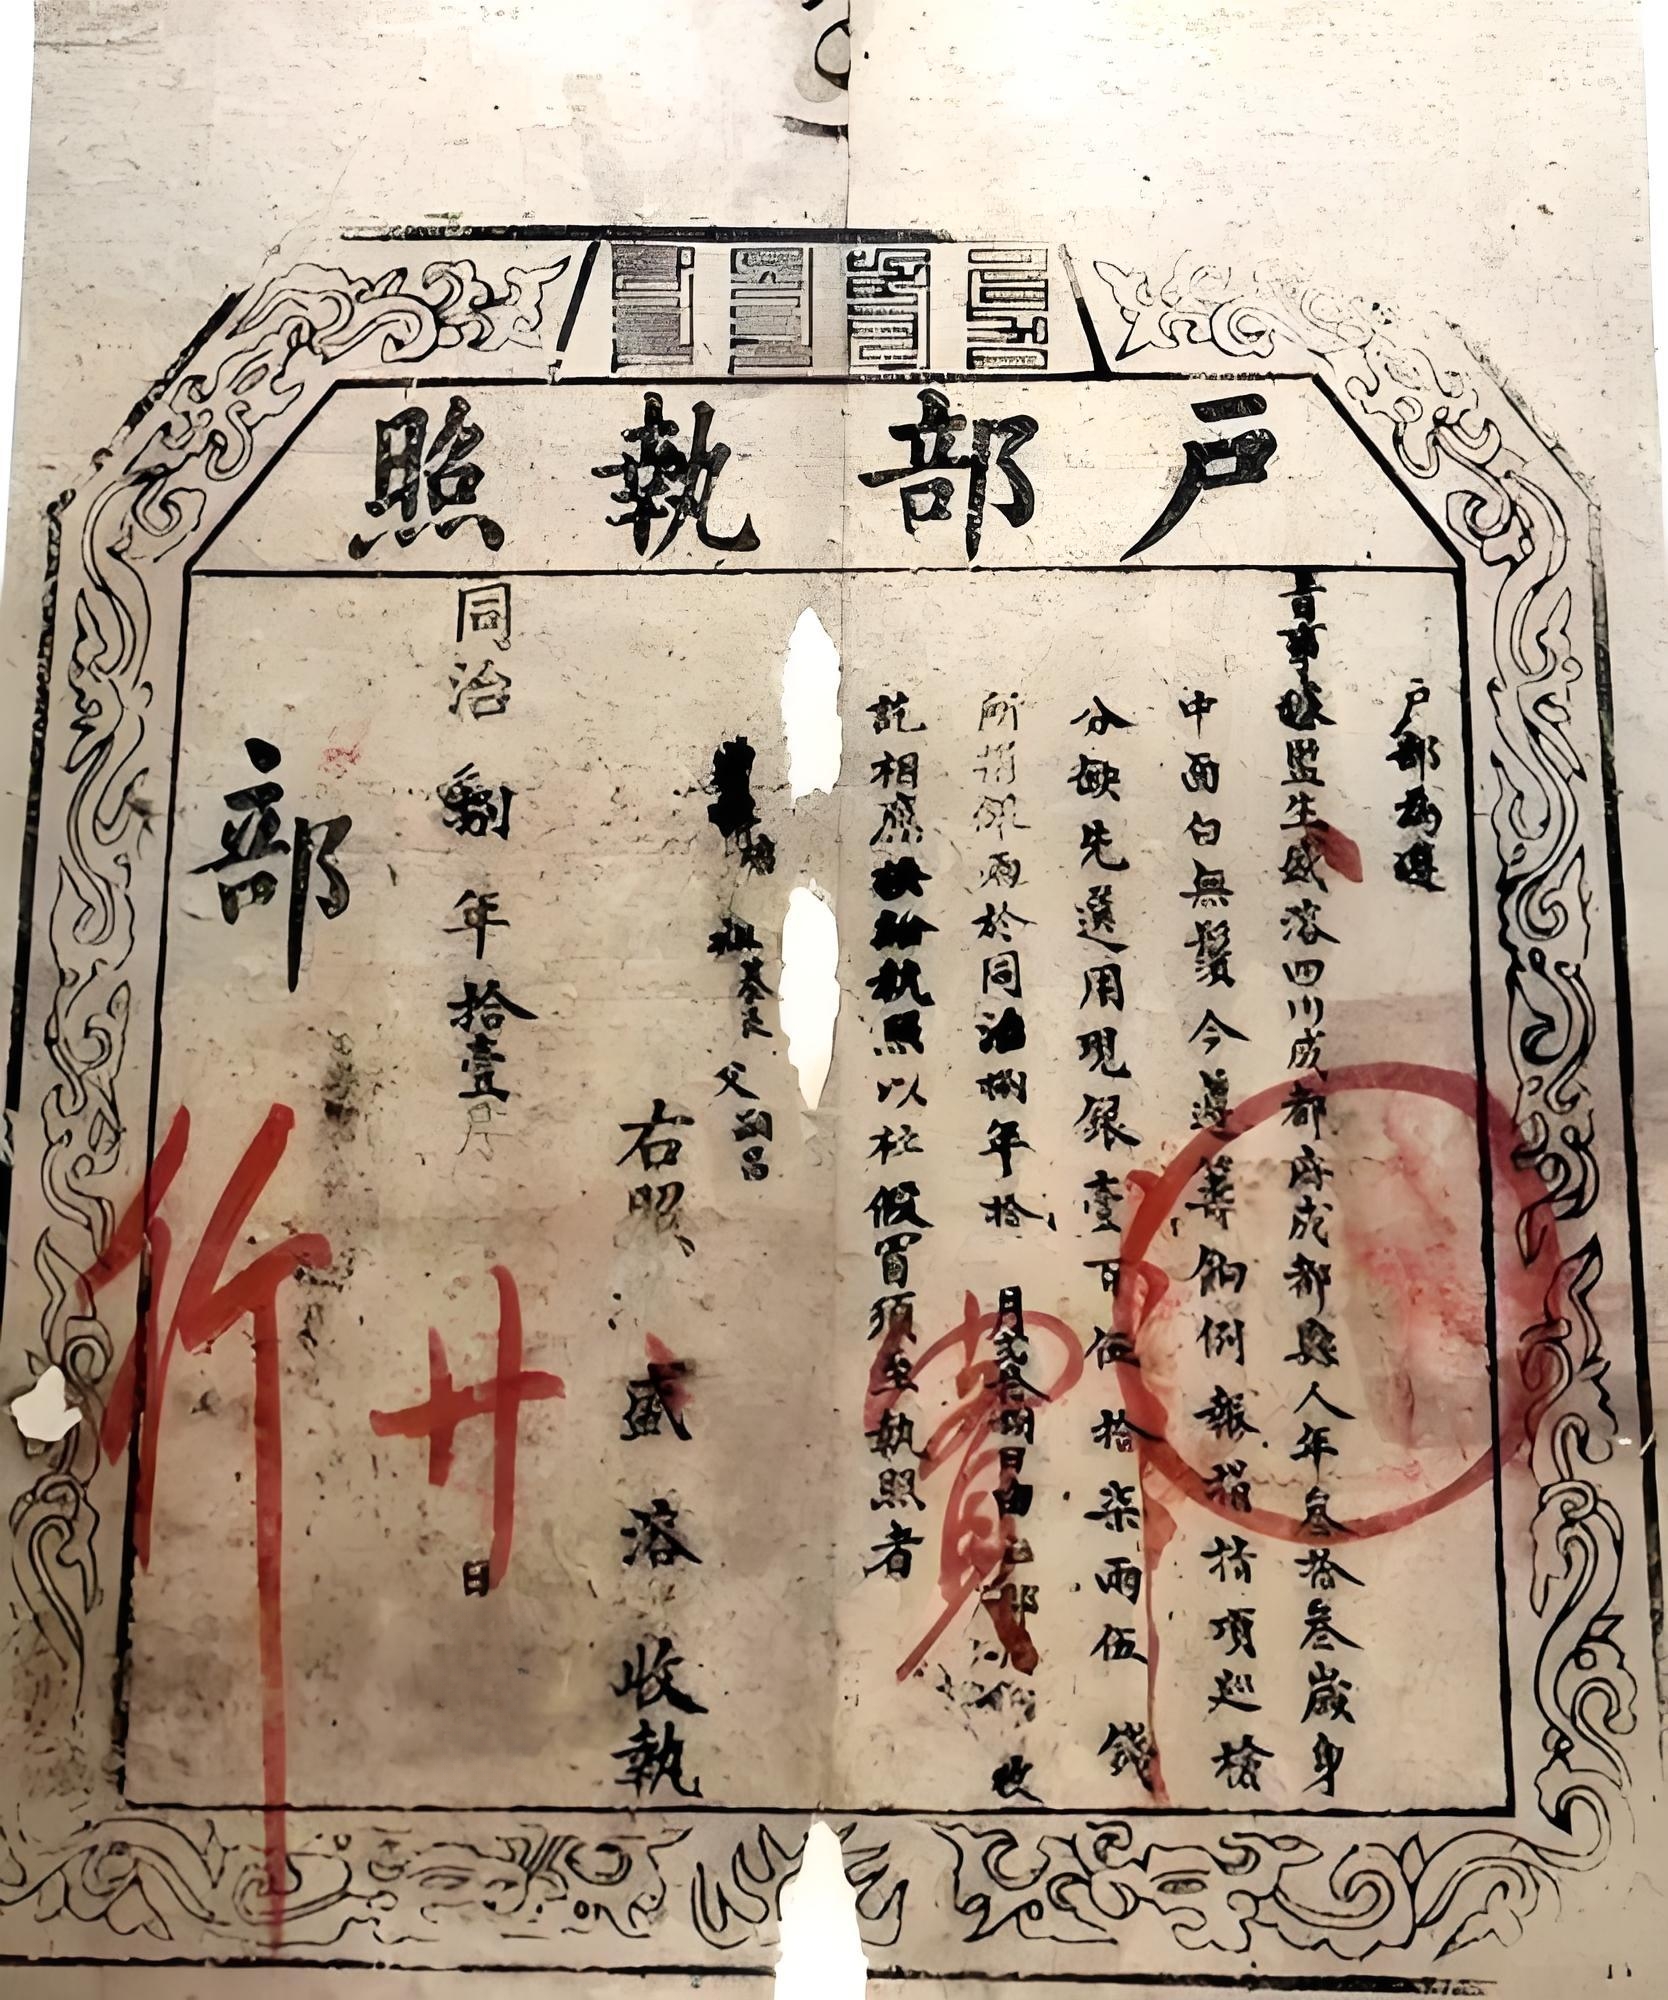 戶部執照
戶部為遵
旨事 監生盛溶四川成都府成都縣人年叁拾叁歲身
中面白無鬚今遵籌餉例報捐指項巡檢
分缺先選用現銀壹百伍拾柒兩伍錢
所捐銀兩於同治捌年拾月 日由 收
訖相應換給執照以杜假冒須至執照者
祖 父
右照盛溶收執
同治捌年拾壹月廿日
部
行
實